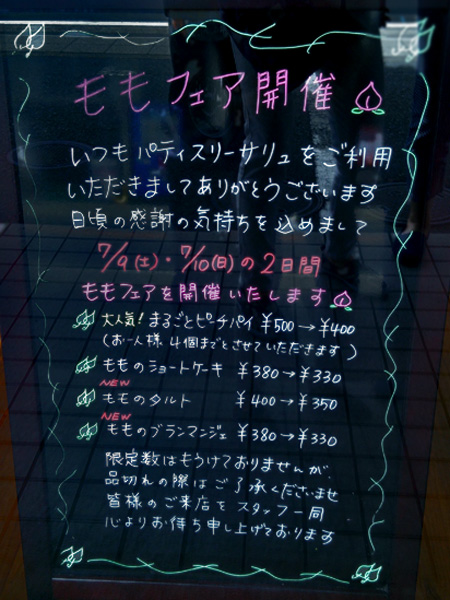 ももフェア開催
いつもパティスリーサリュをご利用
いただきましてありがとうございます
日頃の感謝の気持ちを込めまして
7/9(土)・7/10(日)の2日間
ももフェアを開催いたします
大人気!まるごとピーチパイ ¥500→¥400
(お一人様 4個までとさせていただきます)
もものショートケーキ ¥380→¥330
NEW
もものタルト ¥400→¥350
NEW
もものブランマンジェ ¥380→¥330
限定数はもうけておりませんが
品切れの際はご了承くださいませ
皆様のご来店をスタッフ一同
心よりお待ち申し上げております